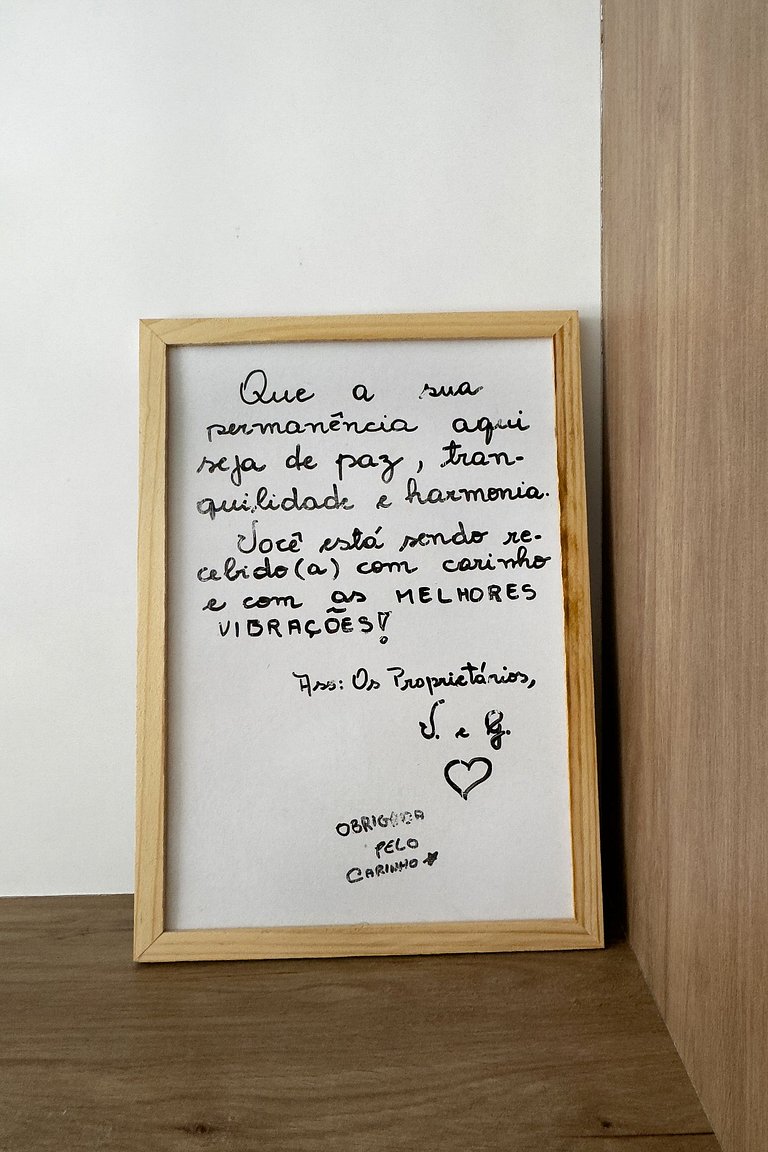 Que a sua
permanência aqui
seja de paz, tran-
quilidade e harmonia.
Você está sendo re-
cebido(a) com carinho
e com as MELHORES
VIBRAÇÕES!
Ass: Os Proprietários,
J. e G.
OBRIGADA
PELO
CARINHO